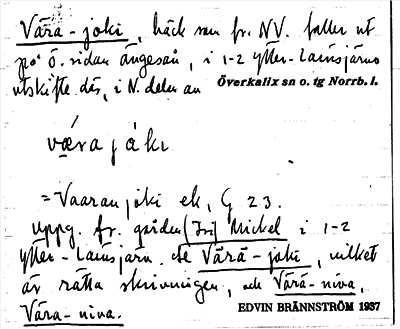 Värä-joki, bäck som fr. NV. faller ut
på ö. sidan ängesån, i 1-2 ytter-Lainsjärvs
utskifte där, i N. delen av Överkalix sn o. tg Norrb. l.
værajåki
= Vaaran joki ek, G 23.
uppg. fr. gården (Isi) Mickel i 1-2
ytter-Lainsjärv. Se Värä-joki, vilket
är rätta skrivningen, och Värä-niva,
Vära-niva.
EDVIN BRÄNNSTRÖM 1937